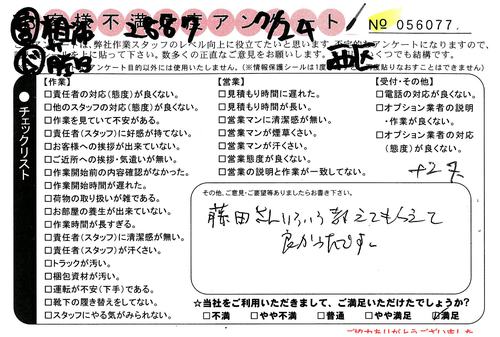 お客様不満足度アンケート
No 056077
2587 7/24
アンケートは、弊社作業スタッフのレベル向上に役立てたいと思います。不定的なアンケートになりますので、
に貼って下さい。数多くの真直なご意見をお願いします。 くつでも結構です。
アンケート目的以外には使用いたしません。(※情報保護シールは1度
貼りなおすことはできません)
チェックリスト
【作業】
□責任者の対応(態度)が良くない。
□他のスタッフの対応(態度)が良くない。
□作業を見ていて不安がある。
□責任者(スタッフ)に好感が持てない。
□お客様への挨拶が出来ていない。
□ご近所への挨拶・気遣いが無い。
□作業開始前の内容確認がなかった。
□作業開始時間が遅れた。
□荷物の取り扱いが雑である。
□お部屋の養生が出来ていない。
□作業時間が長すぎる。
□責任者(スタッフ)に清潔感が無い。
□責任者(スタッフ)が汗くさい。
□トラックが汚い。
□梱包資材が汚い。
□運転が不安(下手)である。
□靴下の履き替えをしてない。
□スタッフにやる気がみられない。
【営業】
□見積もり時間に遅れた。
□見積もり時間が長い。
□営業マンに清潔感が無い。
□営業マンが煙草くさい。
□営業マンが汗くさい。
□営業態度が良くない。
□営業の説明と作業が一致してない。
【受付・その他】
□電話の対応が良くない。
□オプション業者の説明
・作業が良くない。
□オプション業者の対応
(態度)が良くない。
その他、ご意見・ご要望等ありましたらお書き下さい。
藤田さんいろいろ教えてもらえて
良かったです。
☆当社をご利用いただきまして、ご満足いただけたでしょうか?
□不満 □やや不満 □普通 □やや満足 ☑満足
ご協力ありがとうございました